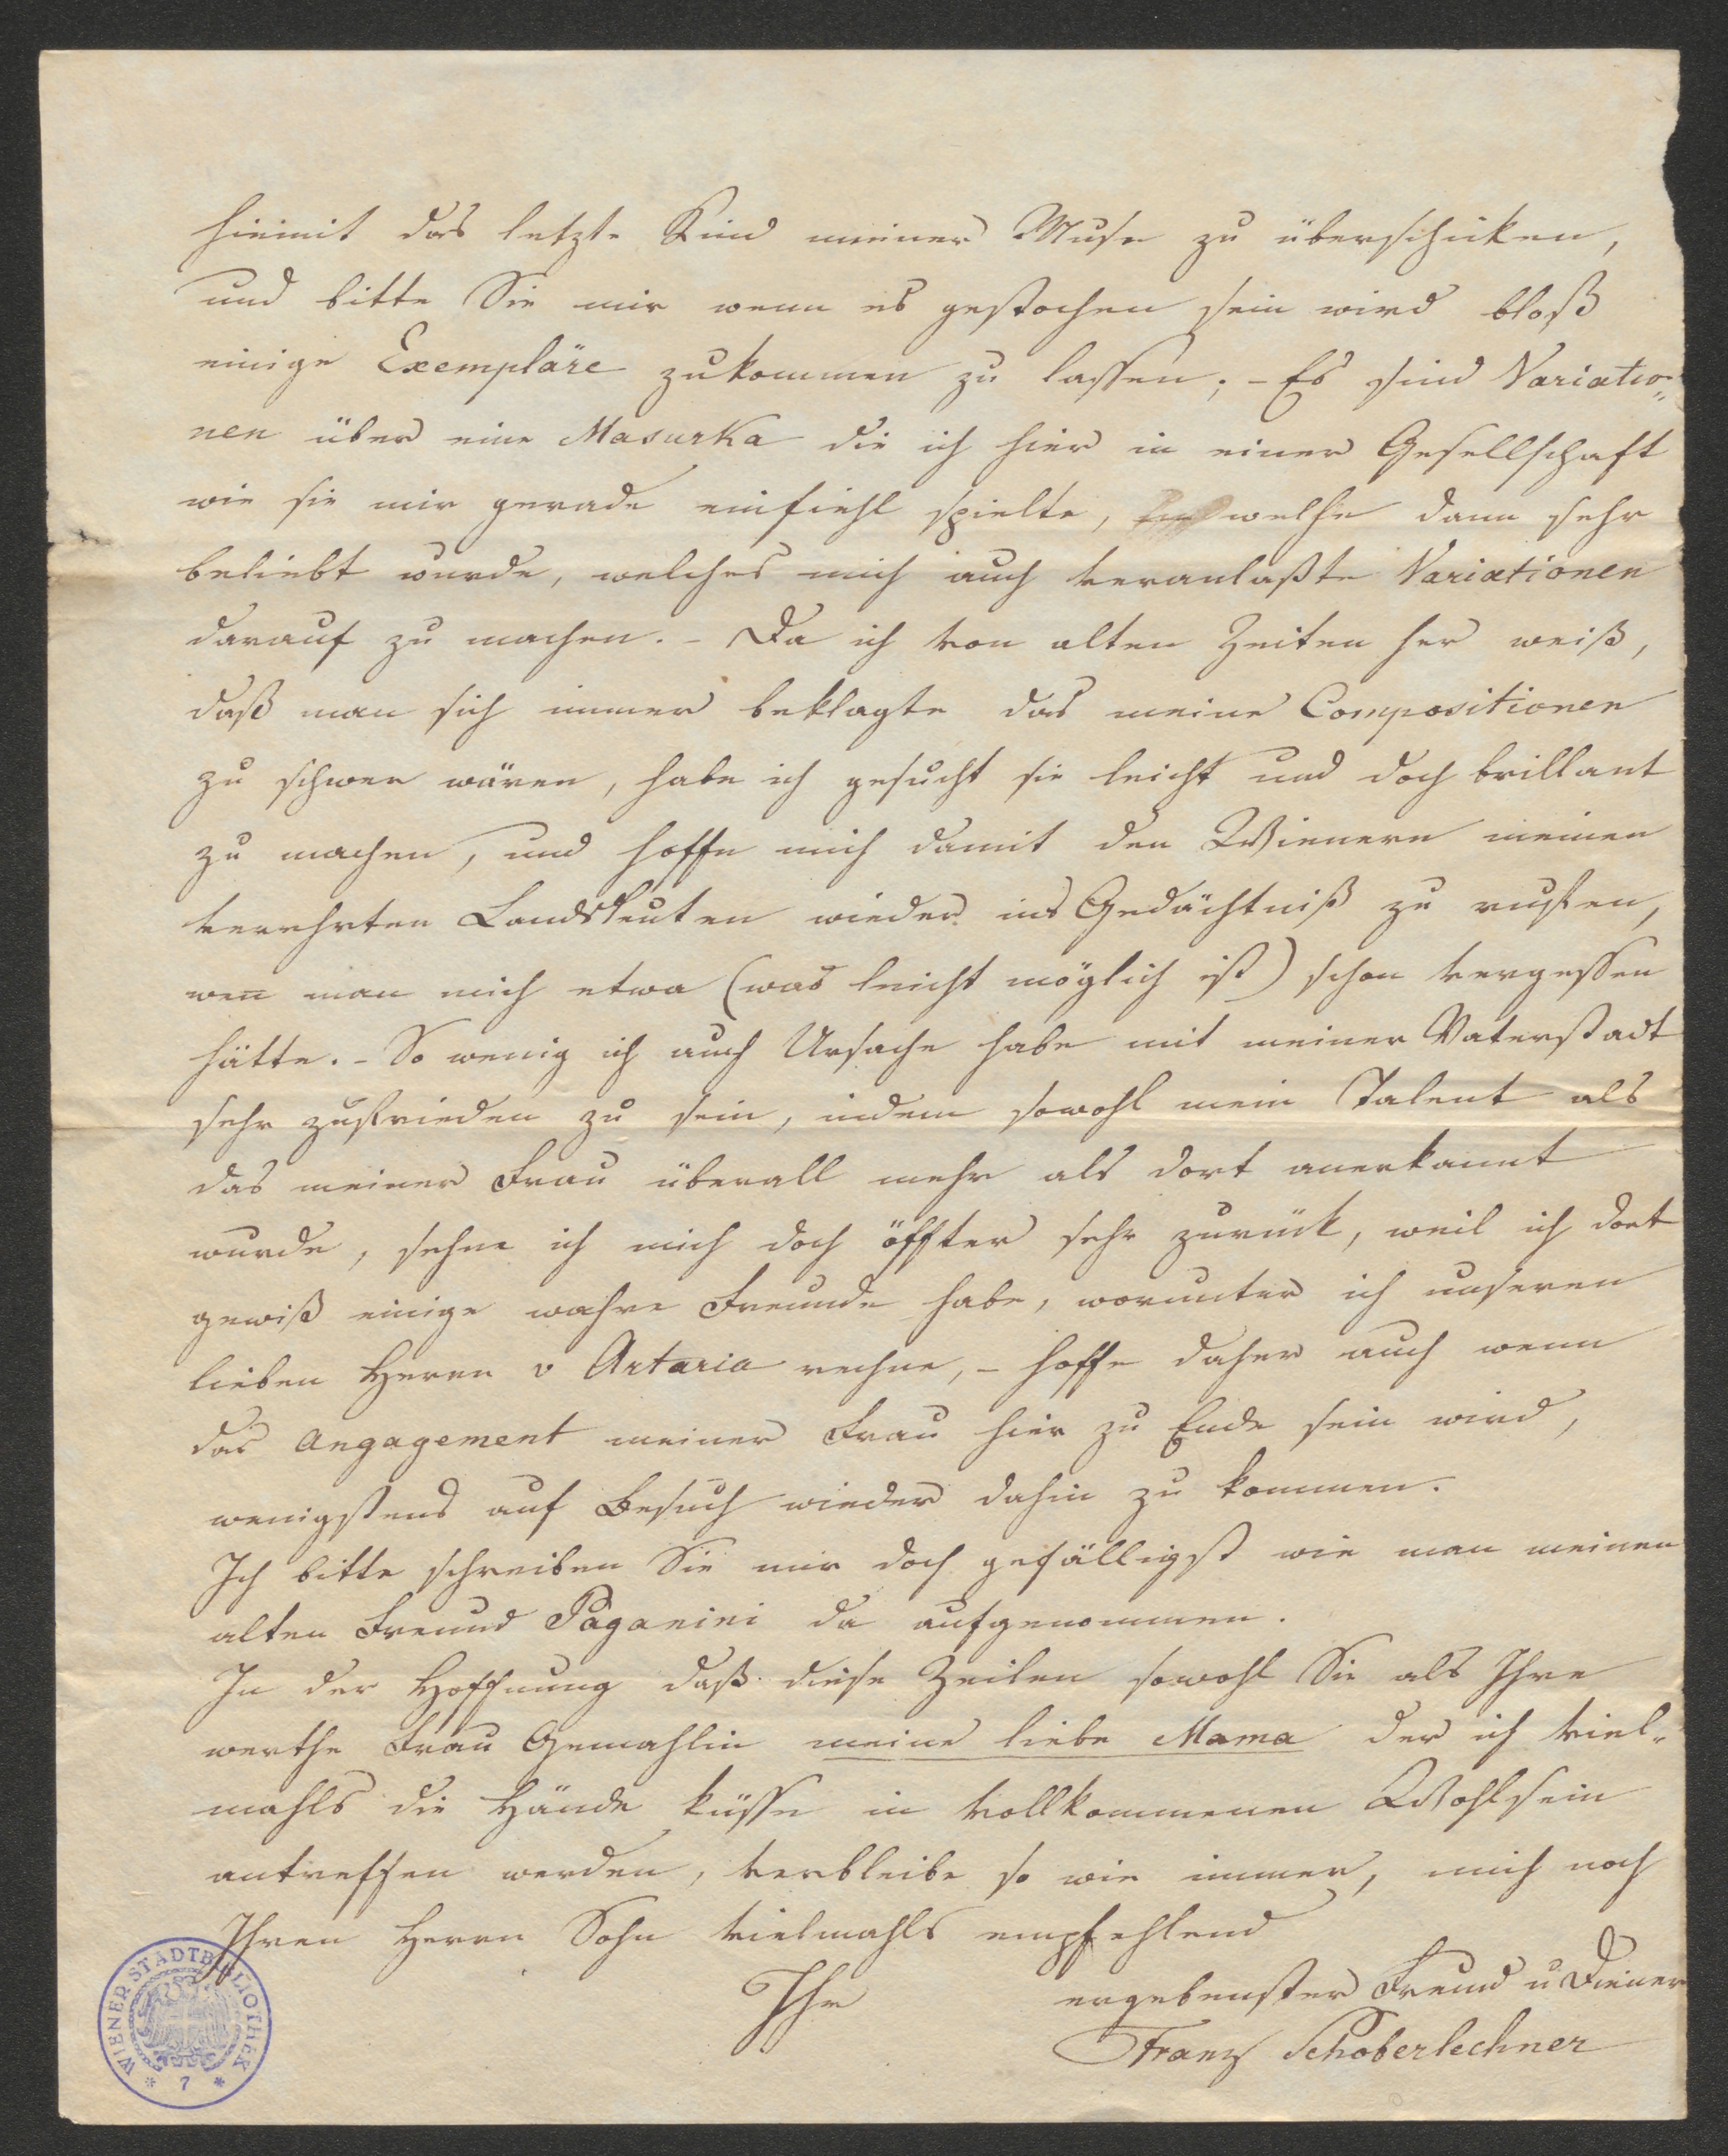 hiemit das letzte Kind meiner Muse zu überschicken,
und bitte Sie mir wenn es gestochen sein wird bloß
einige Exempläre zukommen zu lassen; - Es sind Variatio„
nen über eine Masurka die ich hier in einer Gesellschaft
wie sie mir gerade einfiehl spielte, welche dann sehr
beliebt wurde, welches mich auch veranlaßte Variationen
darauf zu machen. - Da ich von alten Zeiten her weiß,
daß man sich immer beklagte das meine Compositionen
zu schwer wären, habe ich gesucht sie leicht und doch brillant
zu machen, und hoffe mich damit den Wienern meinen
verehrten Landsleuten wieder ins Gedächtniß zu ruffen,
wen̅ man mich etwa (was leicht möglich ist) schon vergessen
hätte. - So wenig ich auch Ursache habe mit meiner Vaterstadt
sehr zufrieden zu sein, indem sowohl mein Talent als
das meiner Frau überall mehr als dort anerkannt
wurde, sehne ich mich doch öffter sehr zurück, weil ich dort
gewiß einige wahre Freunde habe, worunter ich unseren
lieben Herrn v Artaria rechne, - hoffe daher auch wenn
das Angagement meiner Frau hier zu Ende sein wird,
wenigstens auf Besuch wieder dahin zu kommen.
Ich bitte schreiben Sie mir doch gefälligst wie man meinen
alten Freund Paganini da aufgenommen.
In der Hoffnung daß diese Zeilen sowohl Sie als Ihre
werthe Frau Gemahlin meine liebe Mama der ich viel-
mahls die Hände küsse in vollkommenen Wohlsein
antreffen werden, verbleibe so wie immer, mich noch
Ihren Herrn Sohn vielmahls empfehlend
Ihr
ergebenster Freund u Diener
Franz Schoberlechner
WIENER STADTBIBLIOTHEK
* 7 *